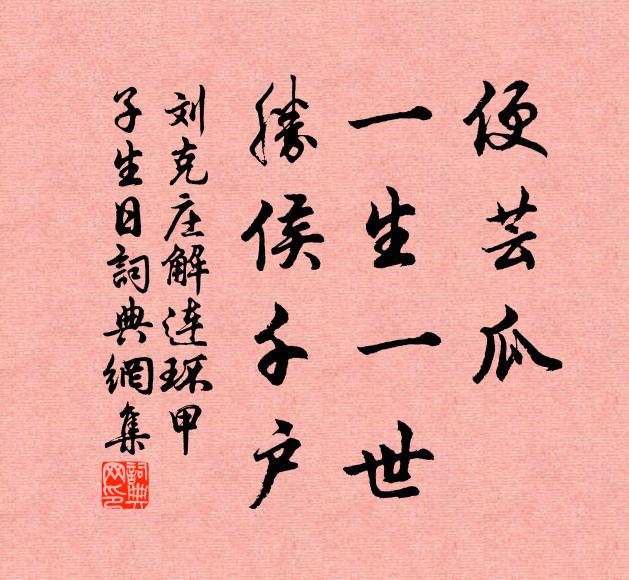 便芸瓜
一生一世
勝侯千户
刘克庄解连环甲
子生日詞典網集
詞典网印